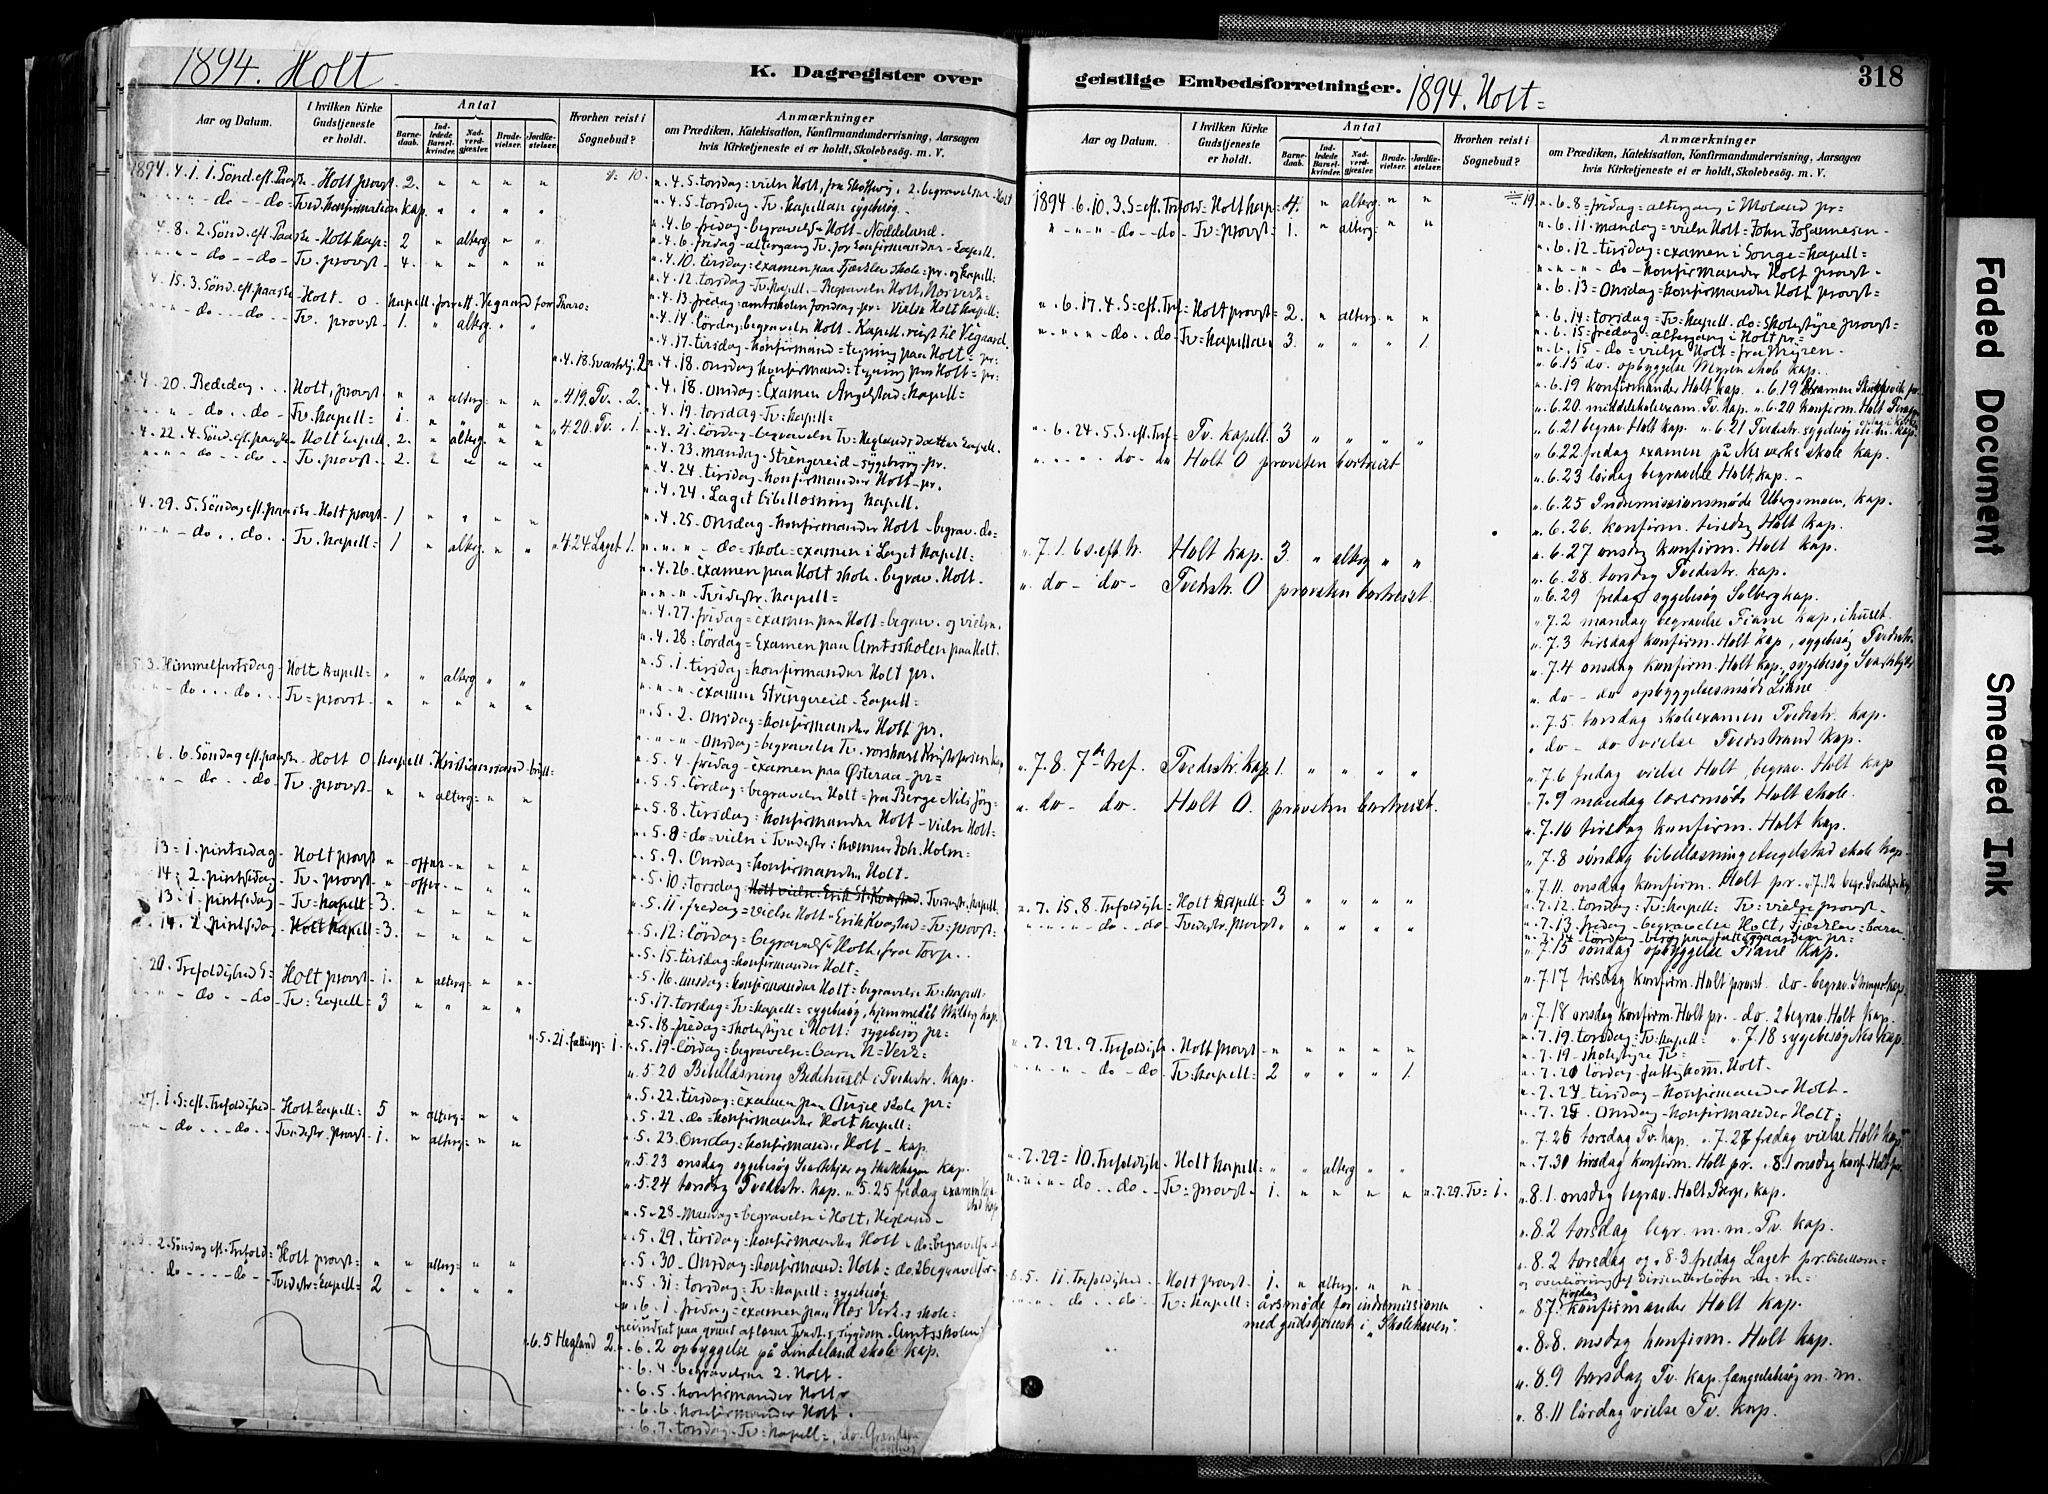 1894. Holt.
K. Dagregister over
Aar og Datum.
I hvilken Kirke Gudstjeneste er holdt.
Antal
Barnedaab.
Indledede Barselkvinder.
Nadverdgjæster.
Brudevielser.
Jordfæstelser.
Hvorhen reist i Sognebud?
Anmærkninger
om Prædiken, Katekisation, Konfirmandundervisning, Aarsagen
hvis Kirketjeneste ei er holdt, Skolebesøg. m. V.
1894. 4. 1. 1. Sönd. eft. Paaske - Holt provst 2. " " " "
" " " - do - do - Tved. Konfirmation kap. " " " "
" 4. 8. 2. Sönd. eft. Paaske - Holt kap: 2 " alterg " "
" " " - do - - do - Tv. provst - 4. " " " "
" 4. 15. 3. Sönd. eft. paaske - Holt - O - kapell. forrett. Vegaard for
" " - do - - - do - Tv. provst - 1. " alterg " "
4. 20. Bededag . . . Holt, provst " " alterg " "
" " " do . . do - Tv. kapell = 1. " " " "
4. 22. 4. Sönd. eft. paaske - Holt kapell. 2. " alterg " "
" " " - do - - do - Tv: provst - 2. " " " "
4. 29. 5. Söndag eft. paaske - Holt provst - 1 " " " "
" " " - do . . do . Tv. kapell = 1 " alterg " "
5. 3. Himmelfartsdag - Holt kapell = " " alterg " "
" " - do . . . do . . . Tv = provst - " " " " "
5. 6. 6. Söndag eft. paaske - Holt O kapell. Kristianssand
" " - do . . do - Tv. provst - " " alterg = " "
13 = 1. pintsedag - Holt provst " - offer - " "
14 = 2. pintsedag - Tv - provst " - offer - " "
13. 1. pintsedag - Tv = kapell = 3. " " " "
14. 2. pintsedag - Holt kapell = 3. " " " "
20. Trefoldighed S = Holt provst - 1. " alterg - " "
" " " - do - - do - Tv = kapell = 3 " " " "
27. 1. S = eft. Trefoldighed - Holt kapell = 5 " alterg = " "
" " - do - . . . do - Tvedestr. provst - 1. " alterg = " "
2. Söndag eft. Trefold = Holt provst - " " alterg = " "
do - - - - do - - Tvedestr = kapell = 2 " " " "
4 = 10.
" 4. 18. Svartskj. 2
" 4 19. Tv. . 2.
" 4. 20. Tv . . 1.
" 4 24. Laget 1.
" 5. 21. fattigg - 1.
" 6. 5 Hegland 2.
" 4. 5. torsdag = vielse Holt, 2. begravelser - Holt
" 4. 5. torsdag - Tv. kapellan sygebesög -
" 4. 6 - fredag - begravelse Holt - Noddeland -
" 4. 6. fredag - altergang Tv. for konfirmander - kapell.
" 4. 10. tirsdag = examen paa Fjærslev skole = pr. og kapell =
" 4. 12. torsdag - Tv. kapell - Begravelse Holt, Nesverk =
" 4. 13. fredag = amtsskolen foredrag = pr - Vielse Holt kapell =
" 4. 14. lördag, begravelse Holt - Kapell. reist til Vegaard.
" 4. 17. tirsdag - konfirmand = tegning paa Holt = pr =
" 4. 18. onsdag konfirmand = tegning paa Holt = pr =
" 4. 18. onsdag. Examen Angelstad = kapell =
" 4. 19. torsdag - Tv: kapell =
" 4. 21. lördag - begravelse Tv = Neglands datter kapell.
" 4. 23. mandag - Strengereid - sygebesög - pr.
" 4. 24. tirsdag - konfirmander Holt - pr.
" 4. 24. Laget bibellæsning kapell.
" 4. 25. onsdag - konfirmander Holt - begrav. do =
" " " " - do = skole = examen i Laget kapell =
" 4. 26. examen paa Holt skole . begrav. Holt.
" " " " Tvedestr. kapell =
" 4. 27. fridag = examen paa Holt = begrav. og vielse.
" 4. 28. lördag = Examen paa Amtsskolen paa Holt.
" 5. 1. tirsdag = konfirmander Holt pr.
" " " - examen Strengereid - kapell =
" 5. 2. onsdag = konfirmander Holt pr.
" " " " - onsdag = begravelse Tv.
" 5. 4 - fredag - examen paa Østeraa - pr =
" 5. 5. lördag = begravelse Holt = fra Berge Nils Jörg -
" 5. 8. tirsdag = konfirmander Holt - vielse Holt =
" 5. 8 = do = vielse i Tvedestr = Joh. Holm =
" 5. 9. Onsdag = konfirmander Holt -
" 5. 10 = torsdag Holt vielse = Erik St. Kvastad. Tvedestr. kapell
" 5. 11. fredag = vielse Holt - Erik Kvastad = Tv = provst =
" 5. 12: lördag = begravelse Holt, fra Torp. .
" 5. 15 - tirsdag = konfirmander Holt =
" 5. 16. onsdag = konfirmander Holt = begravelse Tv = kapell =
" 5. 17. torsdag = Tv = kapell = sygebesög, hjemmedåb Walberg kap.
" 5. 18 - fredag = skolestyre i Holt = sygebesög pr =
" 5. 19 - lördag = begravelse = barn N = Verk =
" 5. 20 Bibellæsning Bedehuset i Tvedestr. kap.
" 5. 22. tirsdag = examen paa skole pr =
" 5. 22. do = konfirmander Holt kapell =
" 5. 23. onsdag = konfirmander Holt - kap.
" 5. 23 onsdag sygebesög Svartskjær og kap.
" 5. 24 torsdag Tvedestr. kap. " 5. 25 fredag examen
" 5 - 28 - Mandag = begravelse i Holt, Hegland -
" 5. 29. tirsdag = konfirmander Holt = do = begravelse
" 5. 30 - Onsdag = konfirmand = Holt = do. 2 begravelser -
" 5. 31 = torsdag = Tv = kapell = sygebesög
" 6. 1. fridag = examen paa Nes Verk. s skole =
" 6. 2 opbyggelse på Lindeland skole kap.
" 6. 4 - begravelse 2. Holt -
" 6. 5. konfirmander Holt
" 6. 6. konfirmander Holt.
" 6. 7. torsdag - Tv = kapell =, do
geistlige Embedsforretninger.
1894. Holt =
318
Aar og Datum.
I hvilken Kirke Gudstjeneste er holdt.
Antal
Barnedaab.
Indledede Barselkvinder.
Nadverdgjæster.
Brudevielser.
Jordfæstelser.
Hvorhen reist i Sognebud?
Anmærkninger
om Prædiken, Katekisation, Konfirmandundervisning, Aarsagen
hvis Kirketjeneste ei er holdt, Skolebesøg. m. V.
1894. 6. 10. 3. S = eft. Trefold = Holt kap = 4. " alterg " "
" - " - " - do - do - Tv = provst - 1. " alterg " "
" 6. 17. 4. S = eft. Tref = Holt provst = 2. " alterg " "
" " " " do . . do Tv = kapellan 3. " " " 1.
" 6. 24. 5. S. eft. Tref - Tv. kapell. 3 " " " "
" " " " - do - do Holt O provsten bortreist
" 7. 1. 6 s. eft. tr. Holt kap. 3 " alterg " "
" do - do - Tvedestr. O provsten bortreist.
" 7. 8. 7de tref. Tvedestr. kap. 1. " " " "
" do - do. Holt O provsten bortreist.
" 7. 15. 8. Trefoldigh = Holt kapell = 3 " " " "
" " " " - do - do - Tvedestr. provst " " " " "
" 7. 22. 9. Trefoldigh - Holt provst - " " " " "
" - " - " - do - do Tv: kapell = 2 " " " 1.
" 7. 29 = 10. Trefoldigh - Holt kapell = " " alterg " "
" " " " - do . . do . . Tv = provst - 1. " " " "
8. 5. 11. Trefoldighed - Holt provst - 1. " alterg. " "
" - " . do . . do . Tv = kapell = årsmøde for indremissionen
med gudstjenest i "Skolehaven".
= 19.
" 7. 29. Tv = 1.
" 6. 8 - fredag = altergang i Moland pr =
" 6. 11. mandag = vielse Holt = John Johannesen -
" 6. 12 - tirsdag = examen i Songe = kapell =
" " " " - do - konfirmander Holt provst -
" 6. 13 = Onsdag = konfirmander Holt provst =
" 6. 14 = torsdag = Tv = kapell. do = Skolestyre provst =
" 6. 15 = fredag = altergang i Holt pr =
" 6. 15 - do = vielse Holt = fra Myren -
" 6. 15 do. opbyggelse Myren skole kap.
" 6. 19 konfirmander Holt kap. " 6. 19 Examen pr.
" 6. 20. middelskoleexam. Tv. kap. " 6. 20 konfirm. Holt
" 6. 21 begrav. Holt kap. " 6. 21 Tvedestr. sygebesög kap.
" 6. 22. fredag examen på Nes verks skole kap.
" 6. 23 lördag begravelse Holt, kap. -
" 6. 25 Indremissionsmøde Ubergsmoen, kap.
" 6. 26. konfirm. tirsdag Holt kap.
" 6. 27 onsdag konfirm. Holt kap.
" 6. 28. torsdag Tvedestr. kap.
" 6. 29 fredag sygebesøg Solberg kap.
" 7. 2 mandag begravelse Fiane kap, i huset.
" 7. 3 tirsdag konfirm. Holt kap, sygebesøg Tvedestr.
" 7. 4 onsdag konfirm. Holt kap. sygebesøg Svartskjær
" do - do opbyggelsesmøde Liane
" 7. 5 torsdag skoleexamen Tvedestr. kap.
" do - do vielse Tvedestrand kap.
" 7. 6 fredag vielse Holt, begrav. Holt kap
" 7. 9 mandag lærermøde Holt skole.
" 7. 10 tirsdag konfirm. Holt kap.
" 7. 8 søndag bibellæsning Engelstad skole kap.
" 7. 11. onsdag konfirm. Holt pr. " 7. 12 begr. kap
" 7. 12. torsdag = Tv = kapell = Tv: vielse provst -
" 7. 13. fredag - begravelse Holt, Fjærslev = barn -
" 7. 14 - lördag - begr. paa fattiggaarden pr =
" 7. 15 søndag opbyggelse Fiane kap.
" 7. 17 tirsdag konfirm. Holt provst do - begrav. kap.
" 7. 18 onsdag konfirm. Holt pr - do. 2 begrav. Holt kap.
" 7. 19. torsdag = Tv. kapell = " 7. 18 sygebesøg Nes kap.
" 7. 19 - skolestyre Tv =
" 7. 20 lördag - fattigkom. Holt -
" 7. 24 tirsdag - konfirmander Holt -
" 7. 25 . Onsdag - konfirmander Holt =
" 7. 26 torsdag Tv. kap. " 7. 27 fredag vielse Holt kap
" 7. 30 tirsdag konfirm. Holt pr. " 8. 1 onsdag konf. Holt pr.
" 8. 1. onsdag begrav. Holt, Berge, kap.
" 8. 2 torsdag begr. m. m. Tv. kap.
" 8. 2 torsdag og " 8. 3. fredag Laget pr.
og overhöring af m = m =
tirsdag
" 8 7. konfirmander Holt kap.
" 8. 8. onsdag konfirm. Holt kap.
" 8. 9 torsdag Tv. kap. fængselsbesøg m. m.
" 8. 11 lørdag vielse Tv. kap.
Faded Document
Smeared Ink